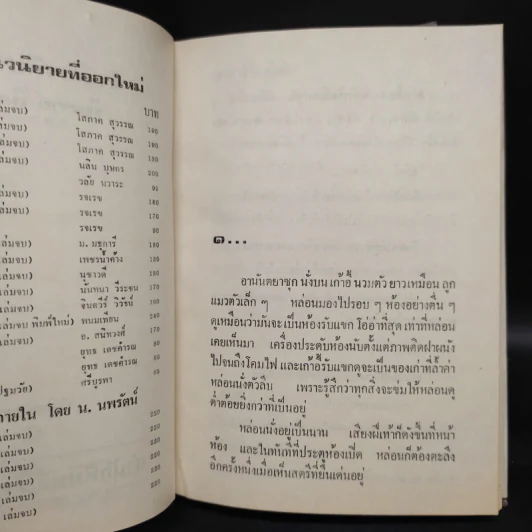 นวนิยายที่ออกใหม่
บาท
เล่มจบ) โสภาค สุวรรณ 140
เล่มจบ) โสภาค สุวรรณ 190
เล่มจบ) โสภาค สุวรรณ 180
เล่มจบ) นลิน บุษกร 200
วลัย นวาระ
เล่มจบ) รจเรข 180
เล่มจบ) รจเรข 170
รจเรข 90
เล่มจบ) ม. มธุการี 180
เล่มจบ) เพชรน้ำค้าง 180
เล่มจบ) นุชาวดี 180
เล่มจบ) นันทนา วีระชน 170
เล่มจบ) จินตวีร์ วิวัธน์ 180
เล่มจบ พิมพ์ใหม่) พนมเทียน
เล่มจบ) อ. สนิทวงศ์
ยุทธ เดชคำรณ
ยุทธ เดชคำรณ
ปฐมวัย) ศรีบูรพา
ภายใน โดย น. นพรัตน์
เล่มจบ) 220
เล่มจบ)
เล่มจบ)
เล่มจบ)
เล่มจบ)
๑...
อานันตยาซุก นั่งบน เก้าอี้ นวมตัว ยาวเหมือน ลูก
แมวตัวเล็ก ๆ หล่อนมองไปรอบ ๆ ห้องอย่างตื่น ๆ
ดูเหมือนว่ามันจะเป็นห้องรับแขก โอ่อ่าที่สุด เท่าที่หล่อน
เคยเห็นมา เครื่องประดับห้องนับตั้งแต่ภาพติดฝาผนัง
ไปจนถึงโคมไฟ และเก้าอี้รับแขกดูจะเป็นของเก่าที่ล้ำค่า
หล่อนนั่งตัวลีบ เพราะรู้สึกว่าทุกสิ่งจะข่มให้หล่อนดู
ต่ำต้อยยิ่งกว่าที่เป็นอยู่
หล่อนนั่งอยู่เป็นนาน เสียงฝีเท้าก็ดังขึ้นที่หน้า
ห้อง และในทันทีที่ประตูห้องเปิด หล่อนก็ต้องตะลึง
อีกครั้งหนึ่งเมื่อเห็นสตรีที่ยืนเด่นอยู่